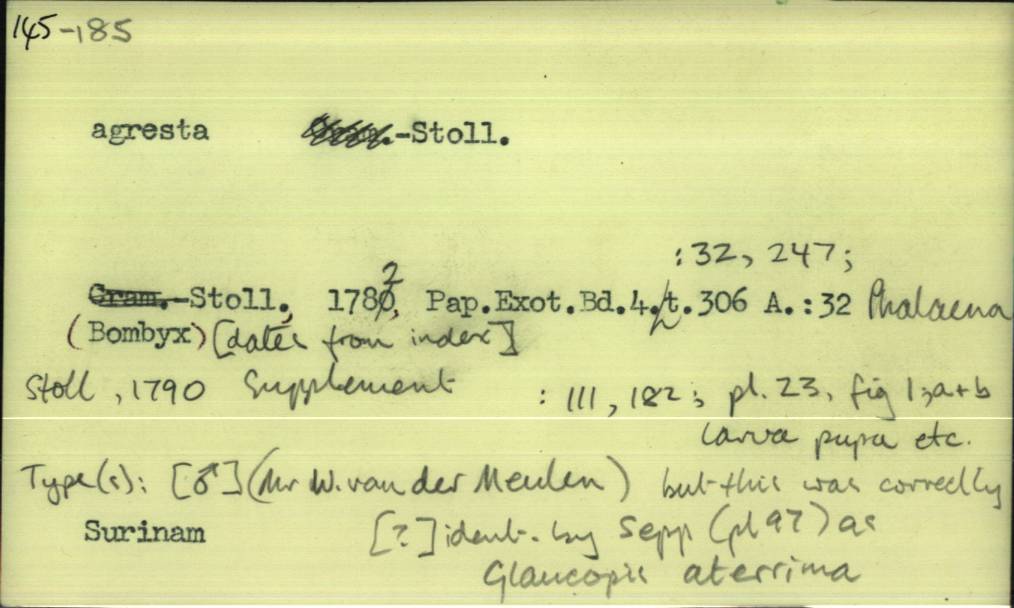 145-185
agresta -Stoll.
:32, 247;
Cram.-Stoll., 1782, Pap.Exot.Bd.4.t.306 A.:32 Phalaena
(Bombyx) [dates from index]
Stoll, 1790 Supplement : 111, 182; pl. 23, fig 1; a+b
larva pupa etc.
Type(s): [♂] (Mr W. van der Meulen) but this was correctly
Surinam [?] ident. by Sepp (pl 97) as
Glaucopis aterrima